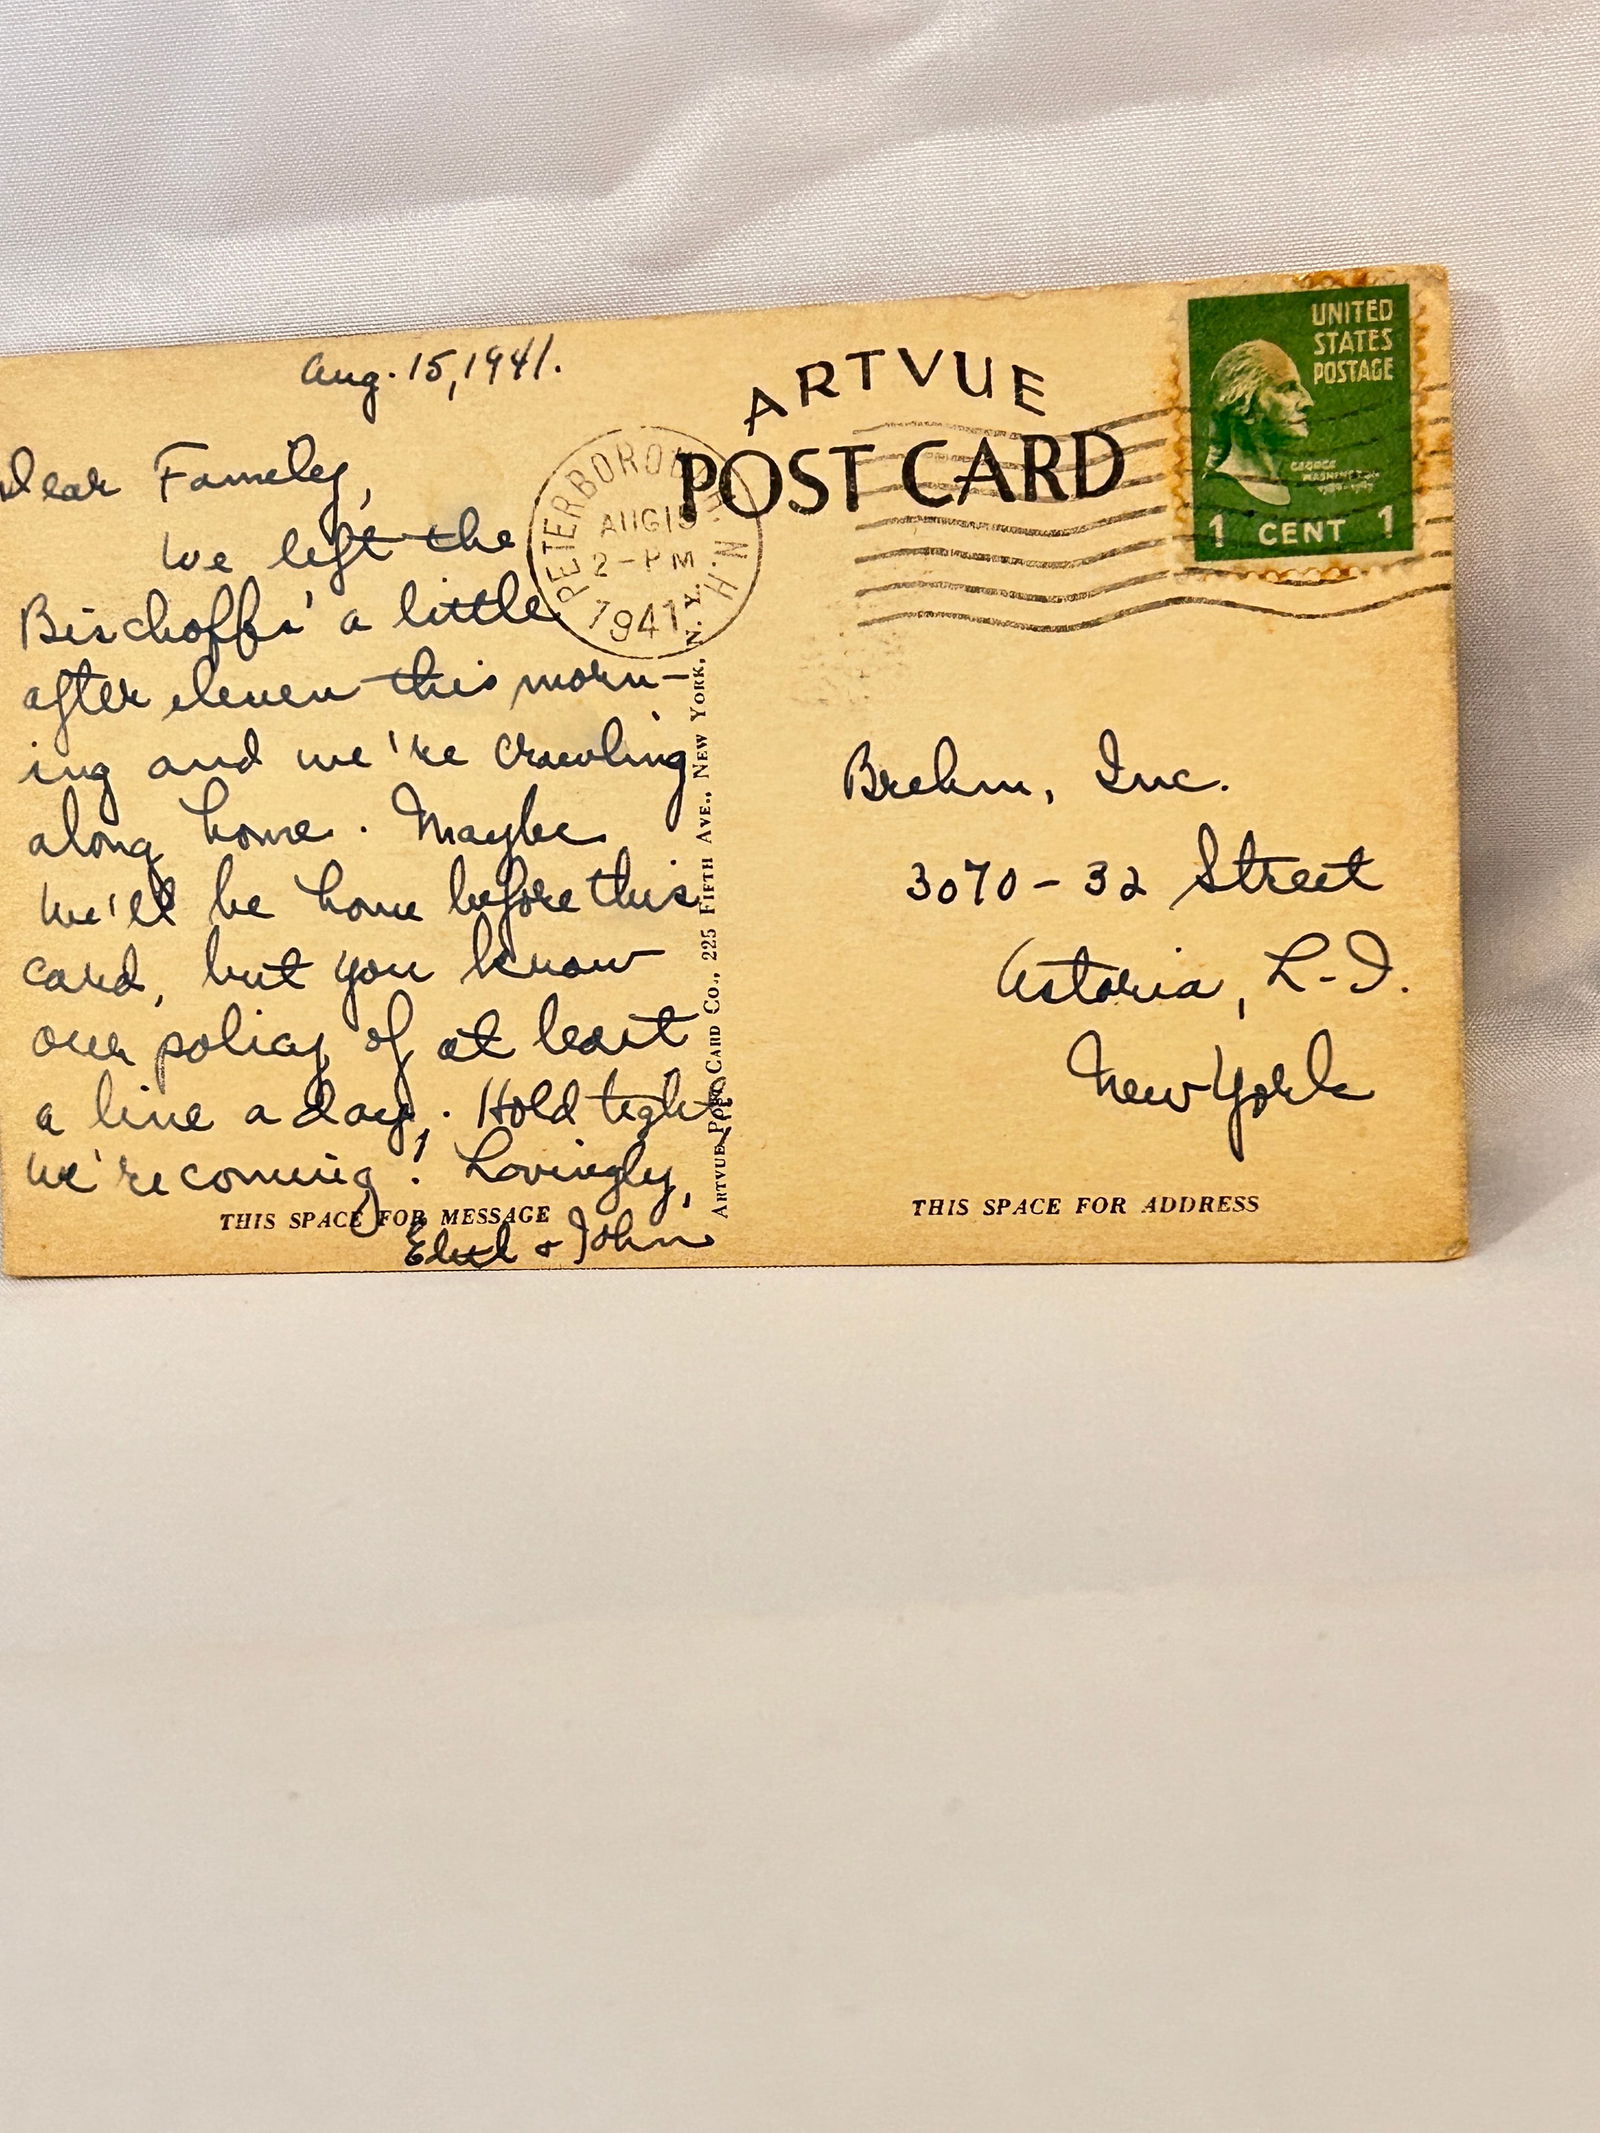 Aug. 15, 1941.
Dear Family,
We left the
Bischoffs' a little
after eleven this morn-
ing and we're crawling
along home. Maybe
we'll be home before this
card, but you know
our policy of at least
a line a day. Hold tight,
we're coming! Lovingly,
THIS SPACE FOR MESSAGE
Edith & John
PETERBOROUGH
N.H.
AUG 15
2-PM
1941
ARTVUE POST CARD CO., 225 FIFTH AVE., NEW YORK, N. Y.
ARTVUE
POST CARD
UNITED
STATES
POSTAGE
GEORGE
WASHINGTON
1 CENT 1
Brehm, Inc.
3070-32 Street
Astoria, L.I.
New York
THIS SPACE FOR ADDRESS